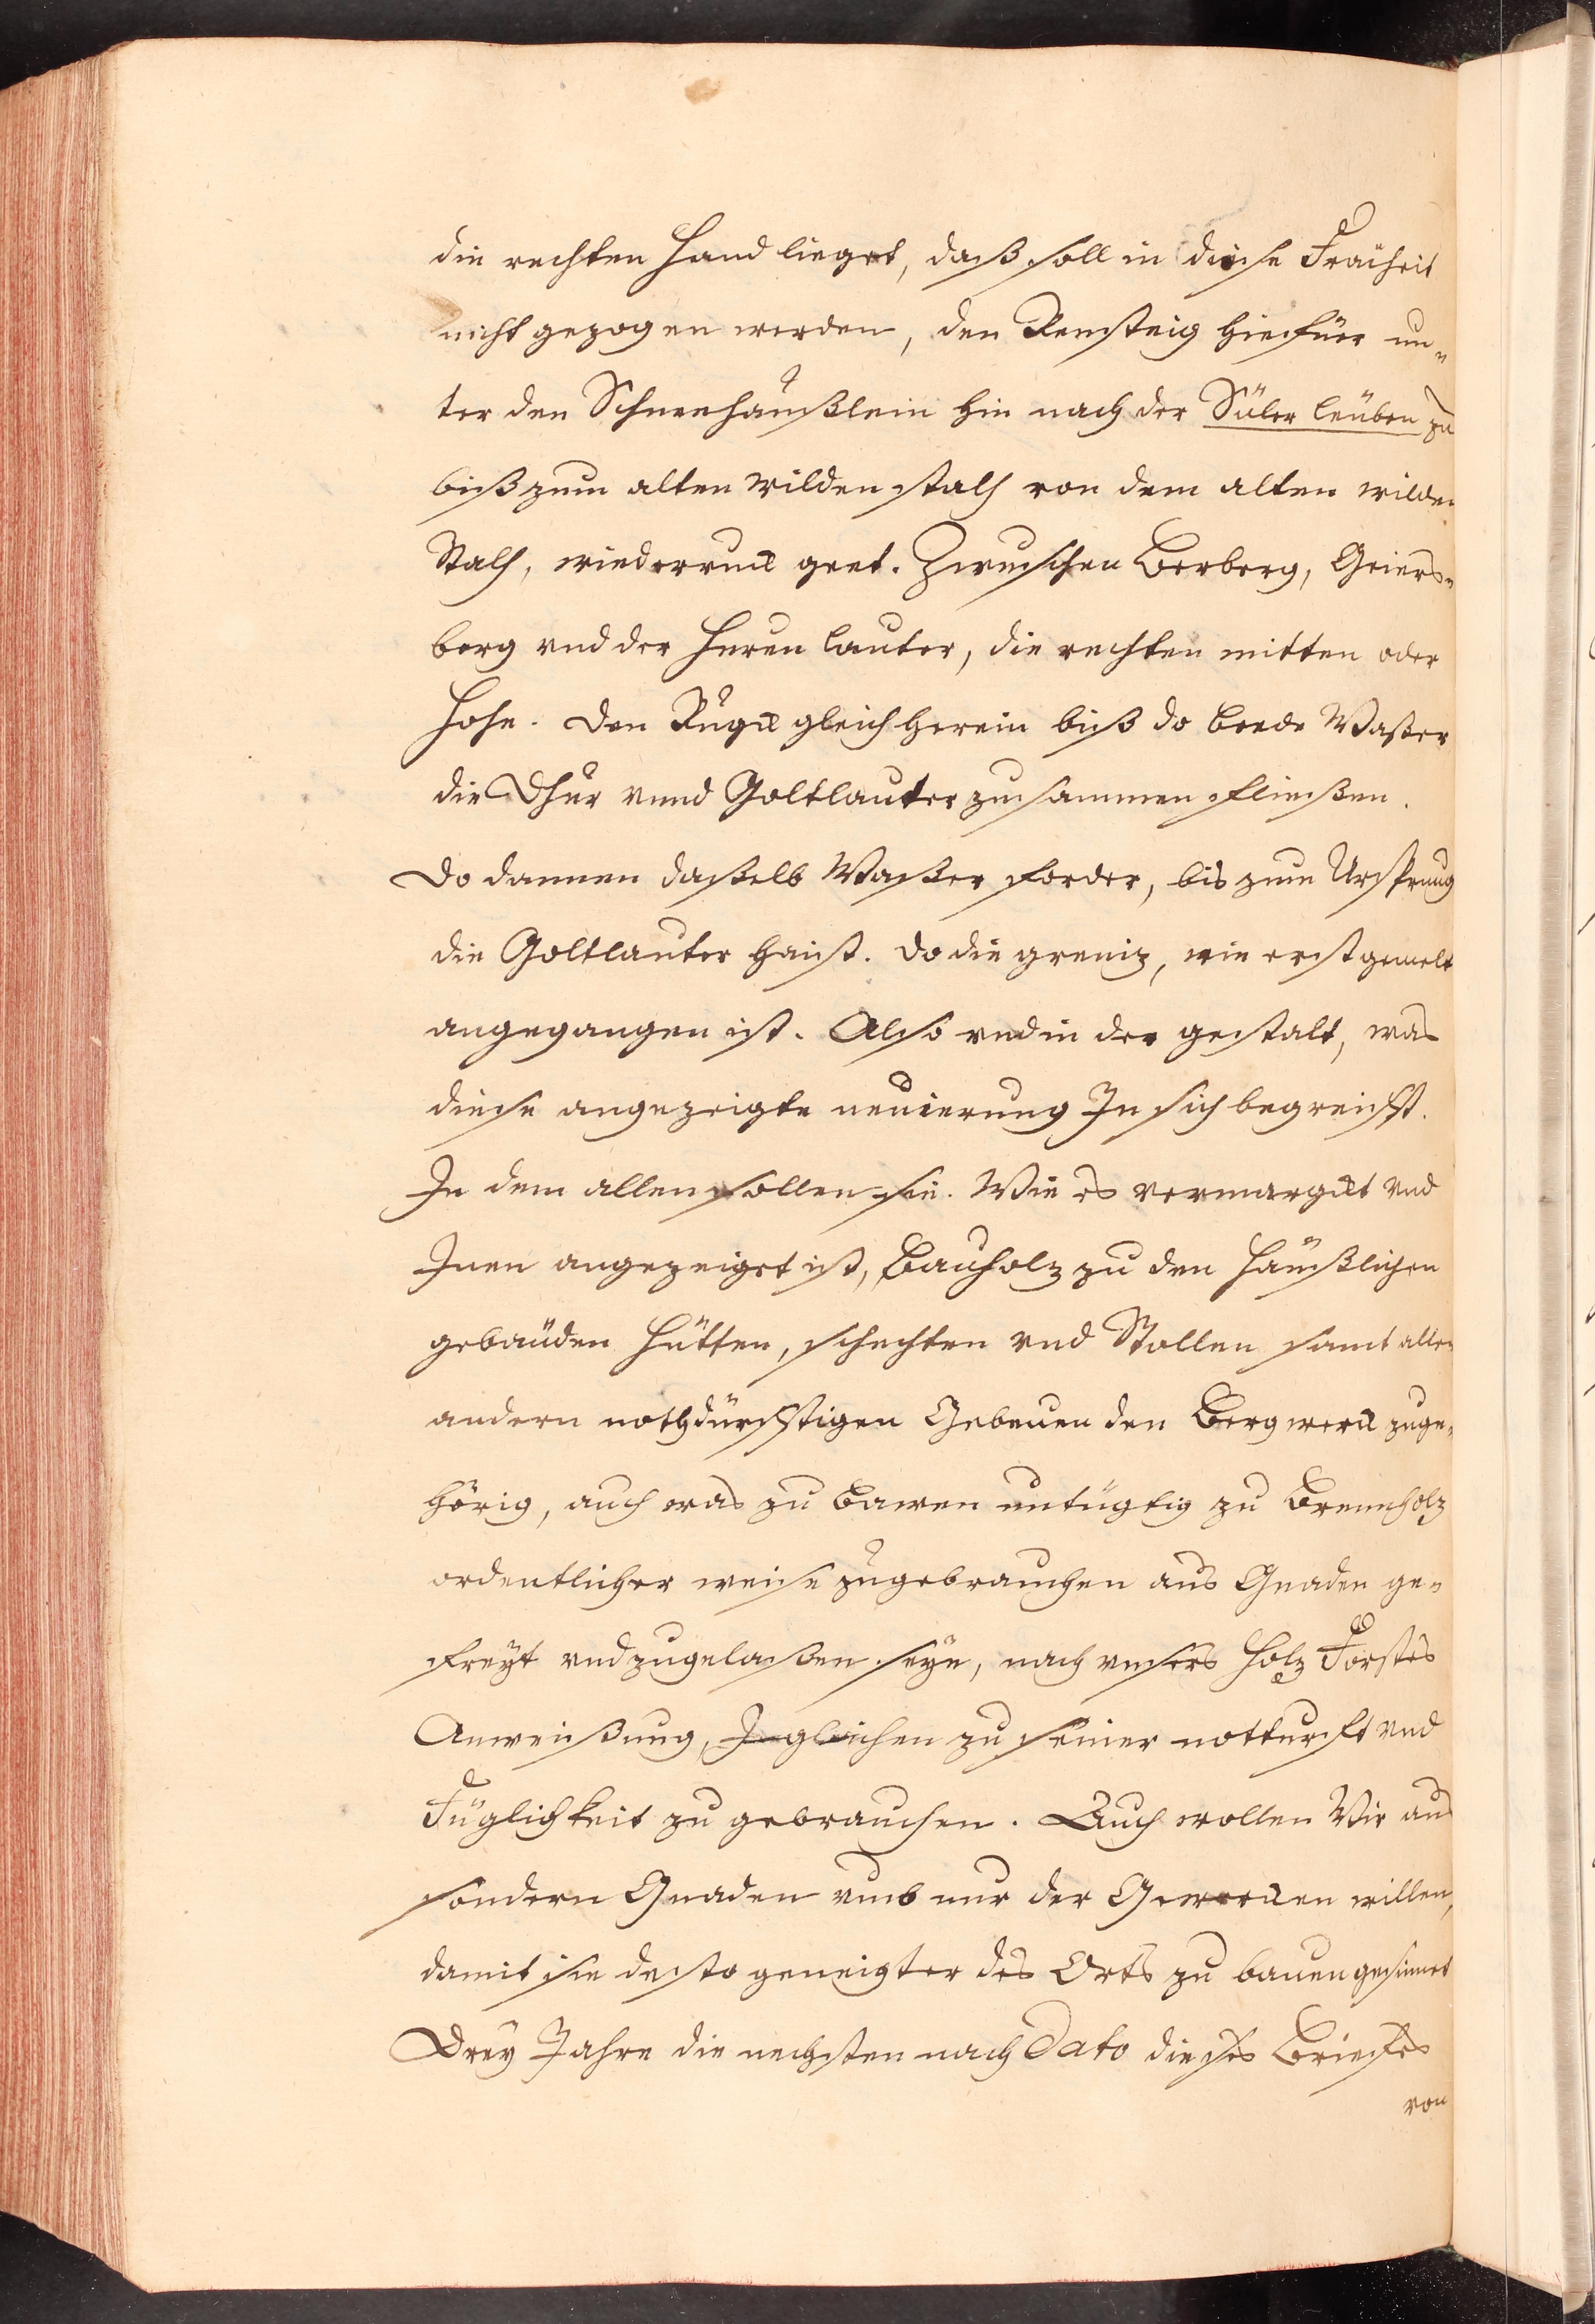 die rechten Hand lieget, daß soll in diese Fräiheit
nicht gezogen werden, den Rensteig hiefüer un-
ter den Schneehäußlein hin nach der Süler leüben zu
biß zum alten wilden stalh von dem alten wilden
Stalh, wiederruck geet. Zwuschen Berberg, Geiers-
berg vnd der Huren lauter, die rechten mitten oder
Hohe. Den Rugk gleich herein biß do beede Waßer
die Dhur vnnd Goltlauter zusammen fließen.
Do dannen daßelb Waßer forder, bis zum Ursprung
die Goltlauter haist. Do die greniz, wie erst gemelt
angegangen ist. Also vnd in der gestalt, was
diese angezeigte neuierung In sich begreifft.
In dem allen sollen sie. Wie es vermargkt vnd
Inen angezeiget ist, Bauholz zu den häußlichen
gebäuden Hütten, schechten vnd Stollen samt allen
andern nothdürfftigen Gebeuen den Bergwerck zuge-
hörig, auch was zu bawen untügtig zu Brennholz
ordentlicher weise zugebrauchen aus Gnaden ge-
freyt vnd zugelaßen seyn, nach vnsers Holz Forstes
Anweißung, Ingleichen zu seiner notturft vnd
Füglichkeit zu gebrauchen. Auch wollen Wir aus
sondern Gnaden vmb nur der Gewercken willen,
damit sie desto geneigter des Orts zu bauen gesinnet
Drey Jahre die nechsten nach Dato dieses Briefes
von